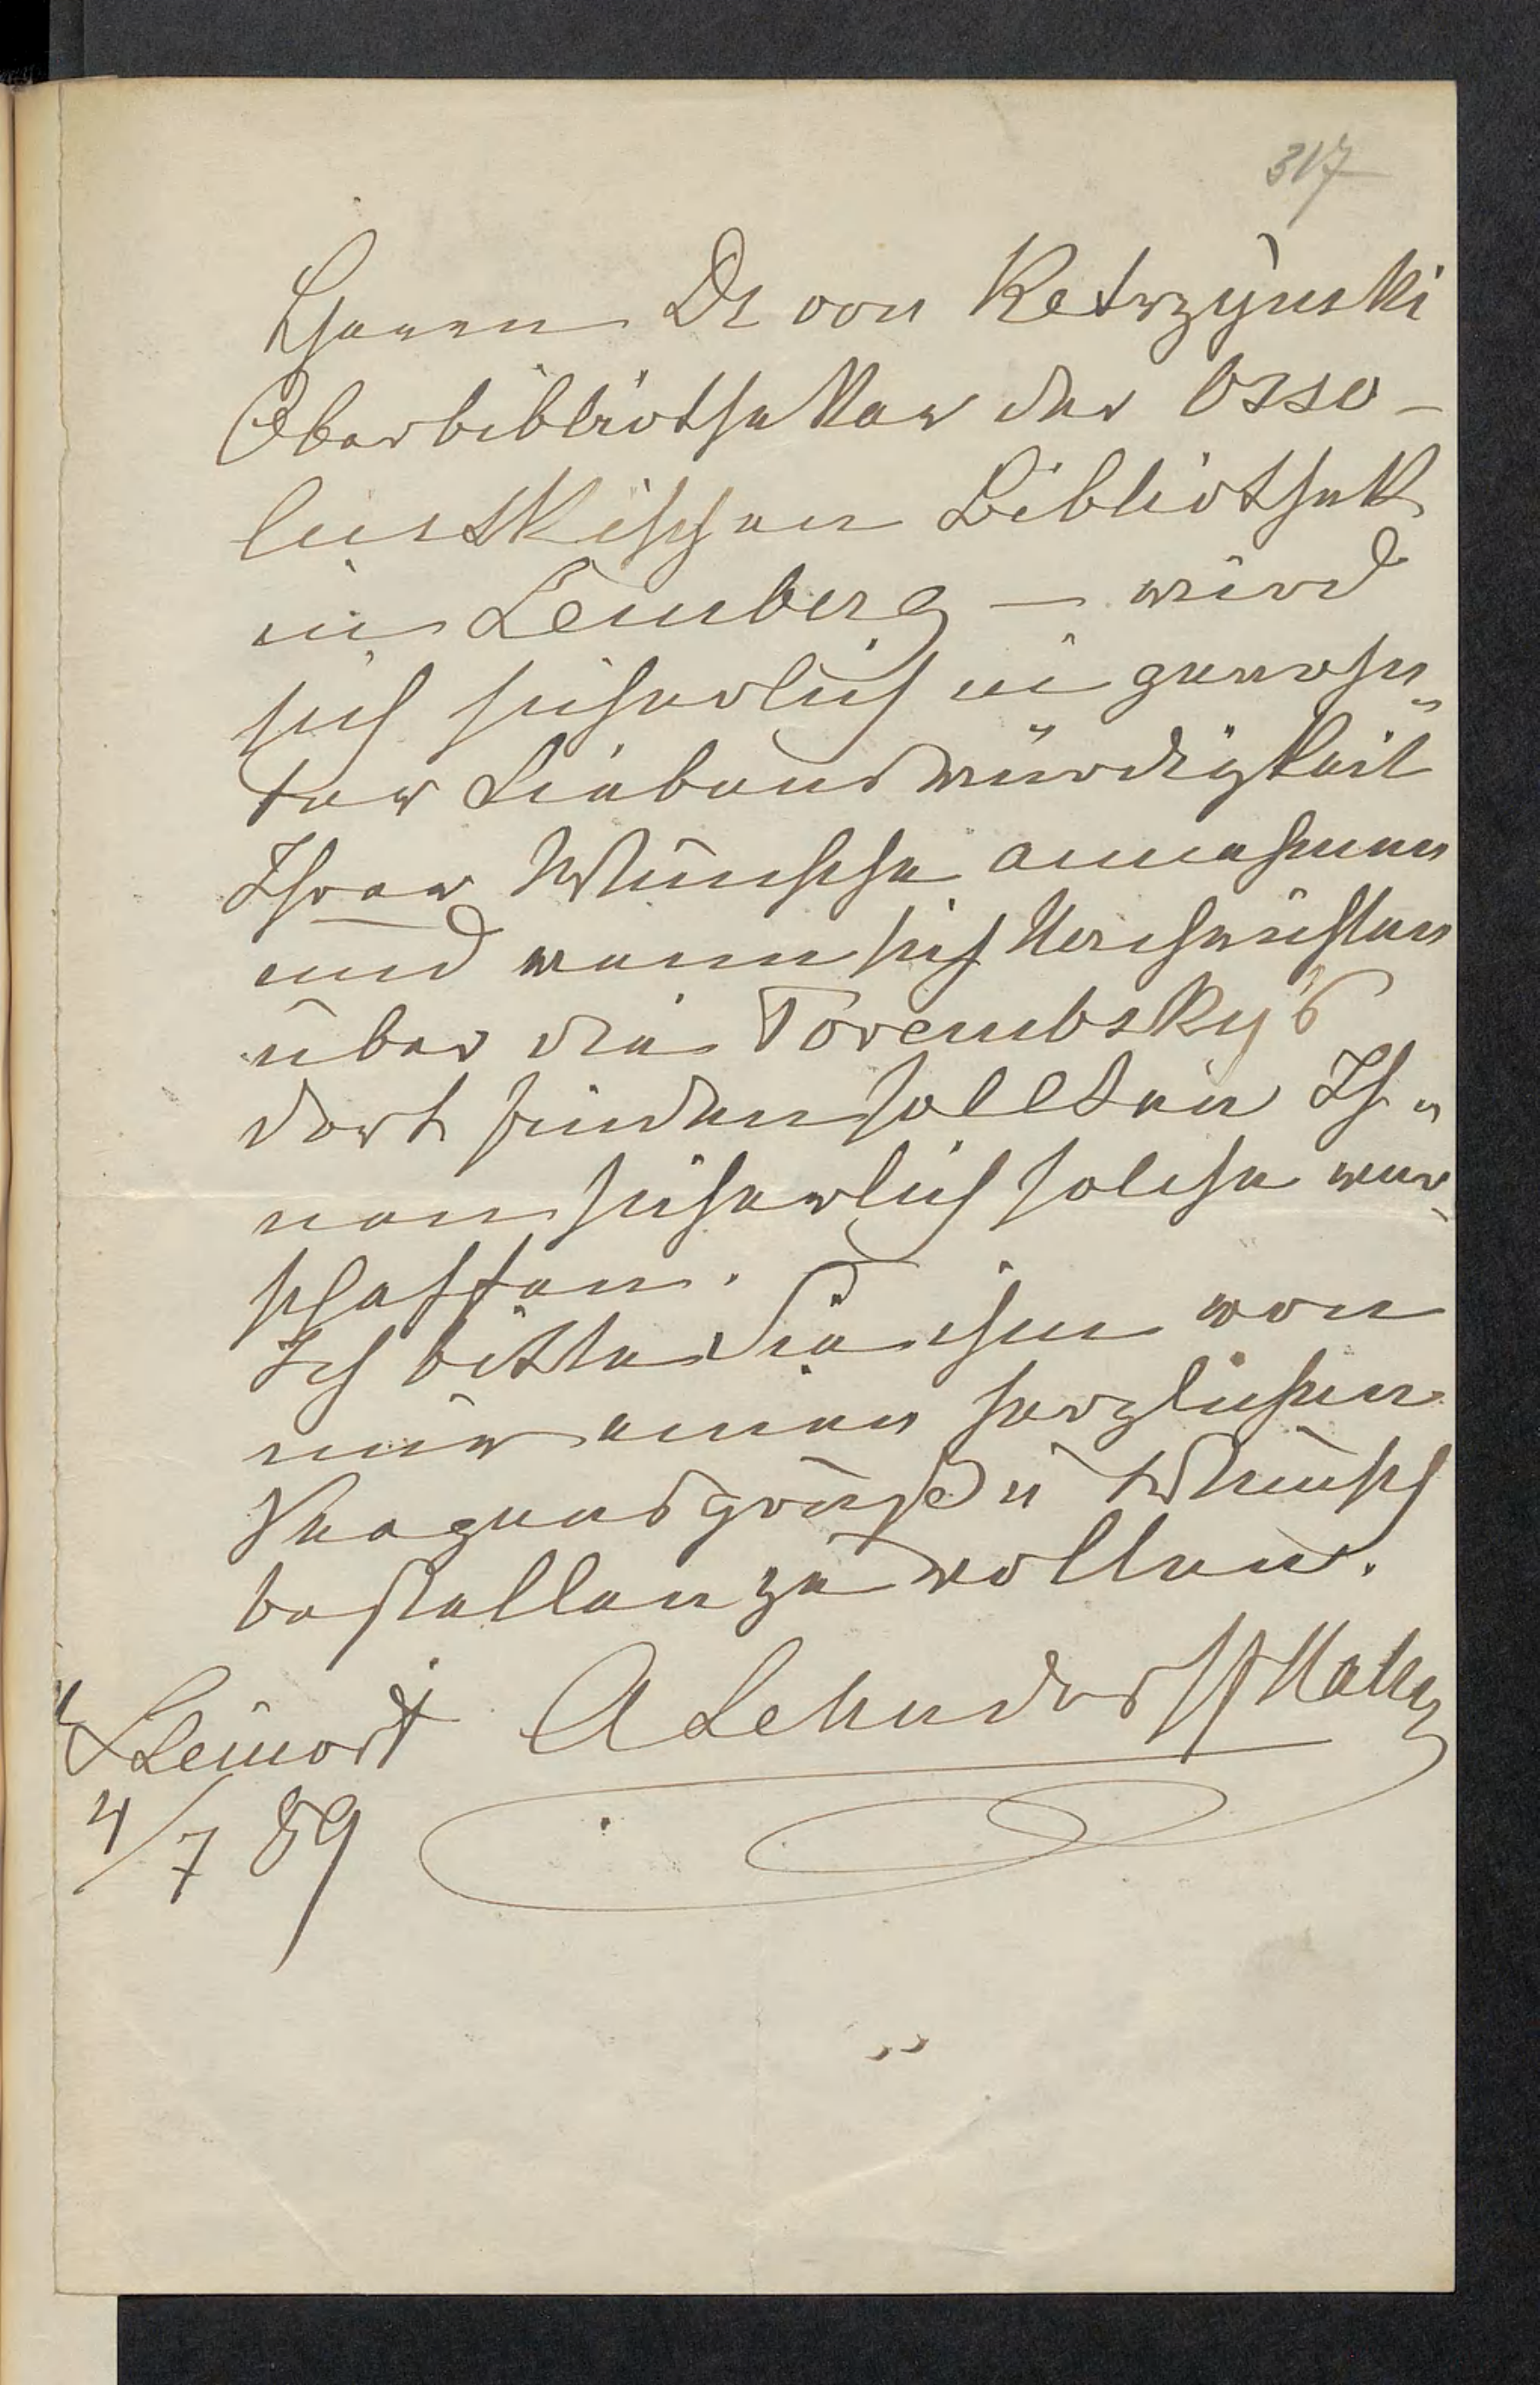 317
Herrn Dr von Ketrzynski
Oberbibliothekar der Osso-
linskischen Bibliothek
in Lemberg – wird
sich sicherlich in gewohn-
ter Liebenswürdigkeit
Ihrer Wünsche annehmen
und wenn sich Nachrichten
über die Dorembsky's
dort finden sollten Ih-
nen sicherlich solche ver-
schaffen.
Ich bitte Sie ihm von
mir einen herzlichen
Seegensgruß u Wunsch
bestellen zu wollen.
Steinort A Lehndorff
4/7 89